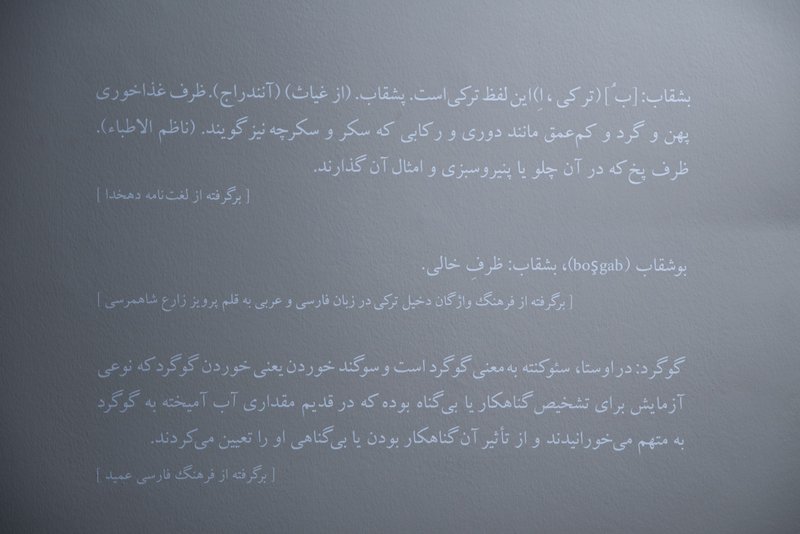 بشقاب: [بُ] (ترکی، اِ) این لفظ ترکی است. پشقاب. (از غیاث) (آنندراج). ظرف غذاخوری
پهن و گرد و کم‌عمق مانند دوری و رکابی که سکر و سکرچه نیز گویند. (ناظم الاطباء).
ظرف پخ که در آن چلو یا پنیروسبزی و امثال آن گذارند.
[ برگرفته از لغت‌نامه دهخدا ]
بوشقاب (boşgab)، بشقاب: ظرفِ خالی.
[ برگرفته از فرهنگ واژگان دخیل ترکی در زبان فارسی و عربی به قلم پرویز زارع شاهمرسی ]
گوگرد: در اوستا، سئوکنته به معنی گوگرد است و سوگند خوردن یعنی خوردن گوگرد که نوعی
آزمایش برای تشخیص گناهکار یا بی‌گناه بوده که در قدیم مقداری آب آمیخته به گوگرد
به متهم می‌خورانیدند و از تأثیر آن گناهکار بودن یا بی‌گناهی او را تعیین می‌کردند.
[ برگرفته از فرهنگ فارسی عمید ]